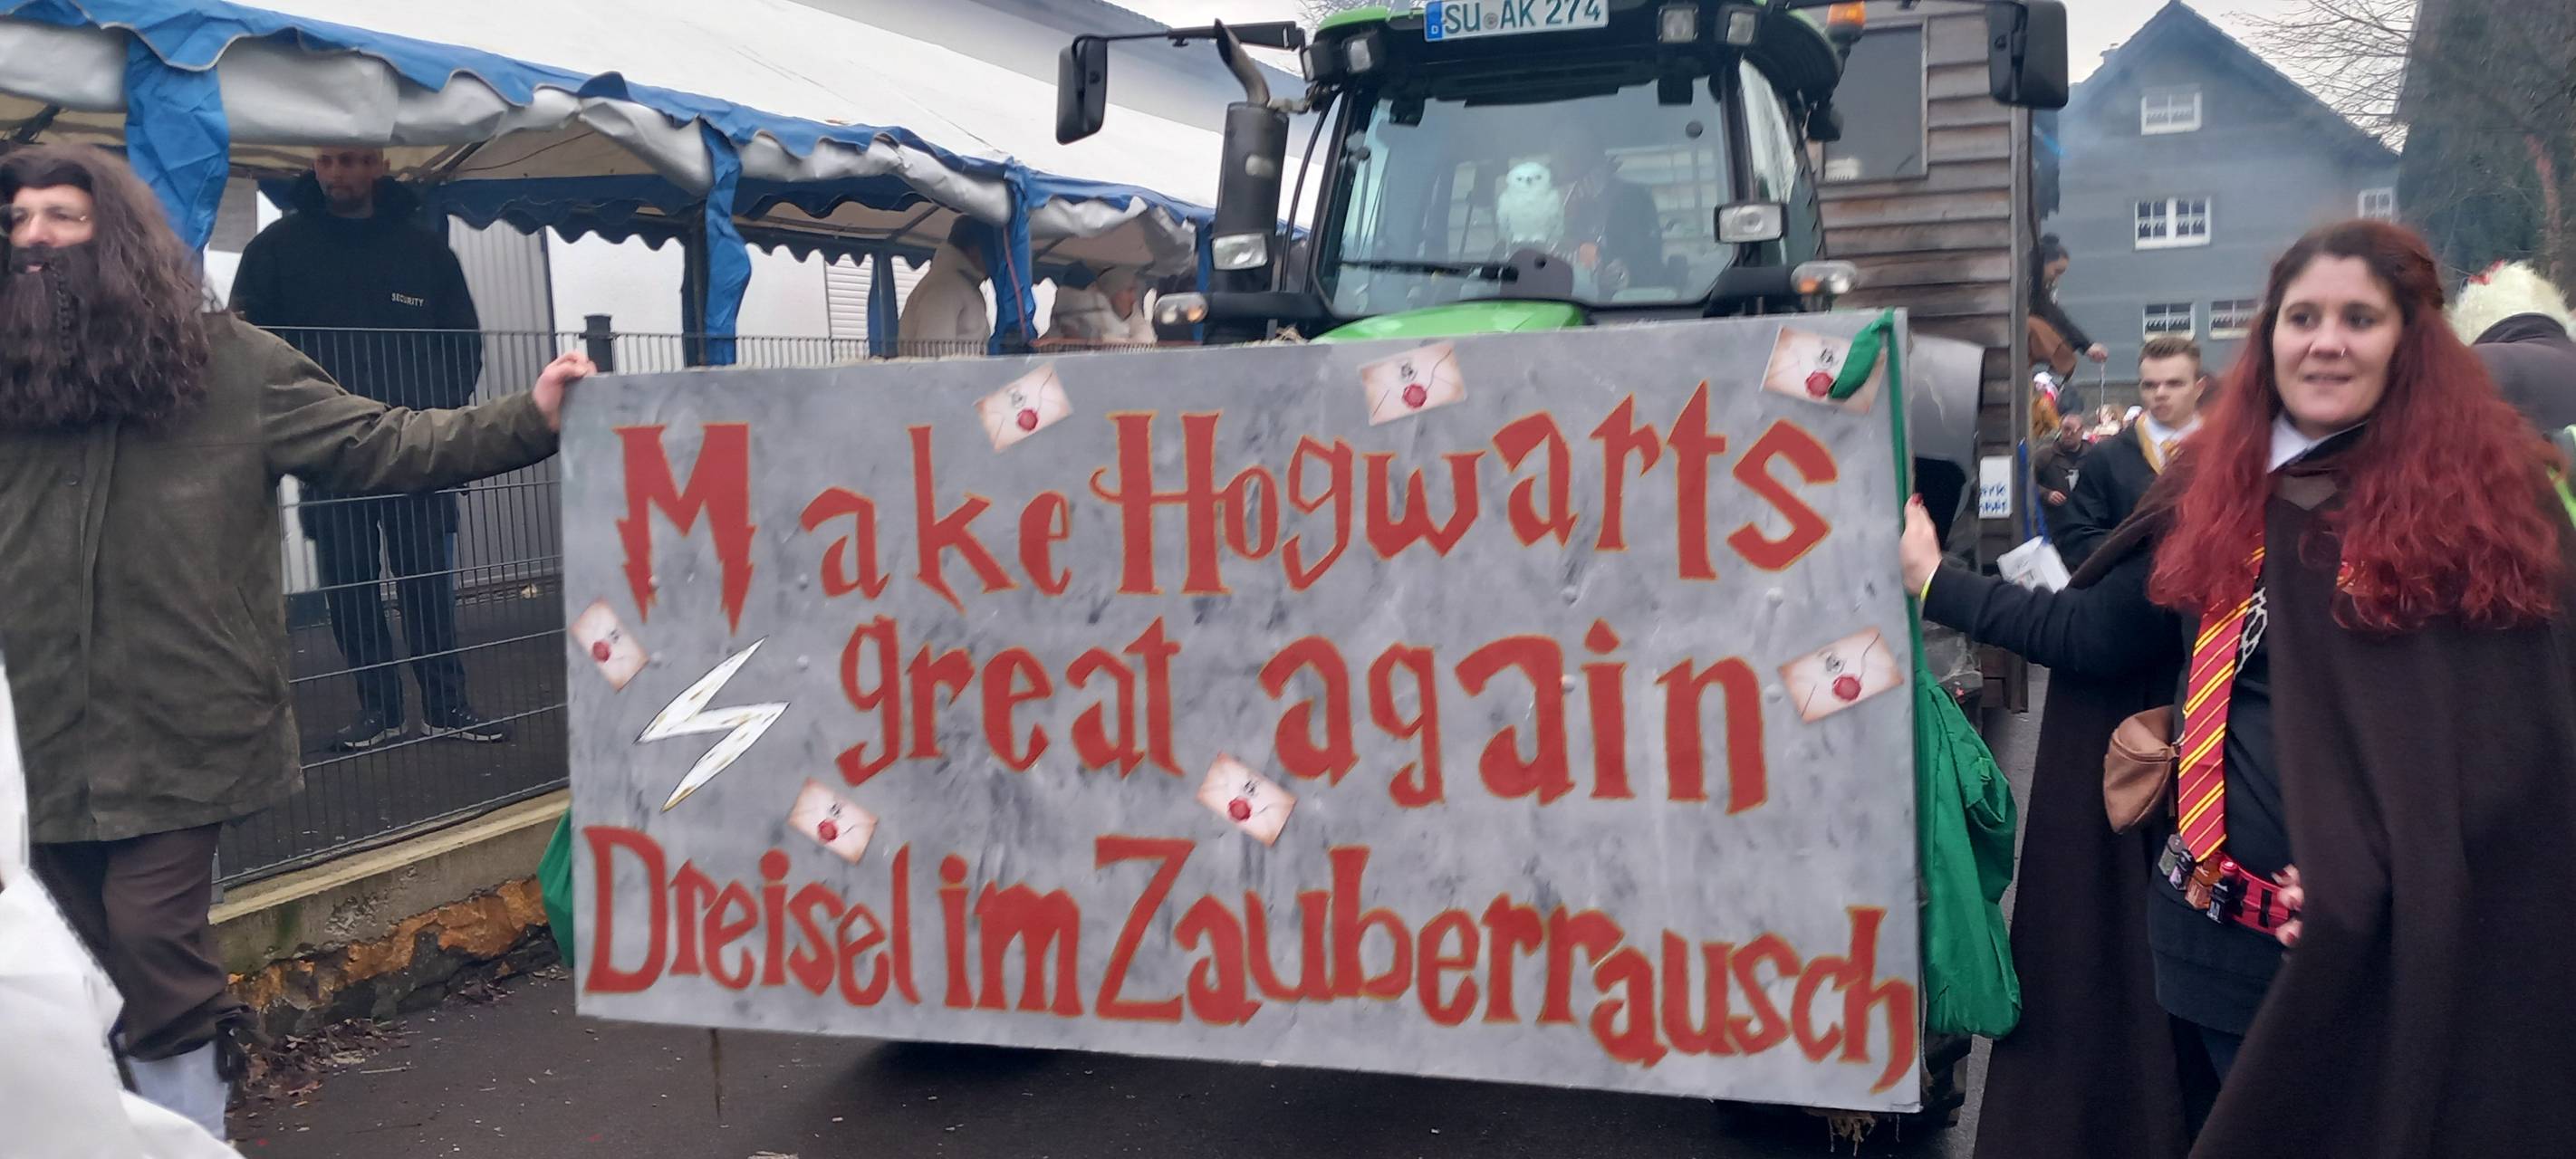 SU AK 274
SECURITY
Make Hogwarts
great again
Dreisel im Zauberrausch